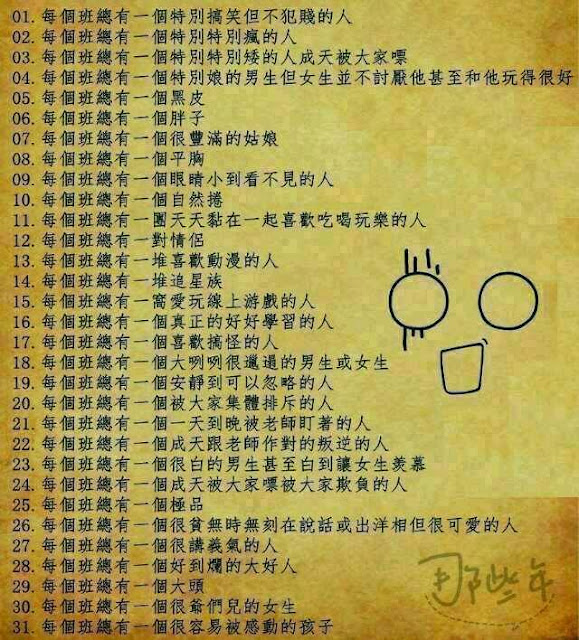 01. 每個班總有一個特別搞笑但不犯賤的人
02. 每個班總有一個特別特別瘋的人
03. 每個班總有一個特別特別矮的人成天被大家嘌
04. 每個班總有一個特別娘的男生但女生並不討厭他甚至和他玩得很好
05. 每個班總有一個黑皮
06. 每個班總有一個胖子
07. 每個班總有一個很豐滿的姑娘
08. 每個班總有一個平胸
09. 每個班總有一個眼睛小到看不見的人
10. 每個班總有一個自然捲
11. 每個班總有一團天天黏在一起喜歡吃喝玩樂的人
12. 每個班總有一對情侶
13. 每個班總有一堆喜歡動漫的人
14. 每個班總有一堆追星族
15. 每個班總有一窩愛玩線上游戲的人
16. 每個班總有一個真正的好好學習的人
17. 每個班總有一個喜歡搞怪的人
18. 每個班總有一個大咧咧很邋遢的男生或女生
19. 每個班總有一個安靜到可以忽略的人
20. 每個班總有一個被大家集體排斥的人
21. 每個班總有一個一天到晚被老師盯著的人
22. 每個班總有一個成天跟老師作對的叛逆的人
23. 每個班總有一個很白的男生甚至白到讓女生羨慕
24. 每個班總有一個成天被大家嘌被大家欺負的人
25. 每個班總有一個極品
26. 每個班總有一個很貧無時無刻在說話或出洋相但很可愛的人
27. 每個班總有一個很講義氣的人
28. 每個班總有一個好到爛的大好人
29. 每個班總有一個大頭
30. 每個班總有一個很爺們兒的女生
31. 每個班總有一個很容易被感動的孩子
那些年